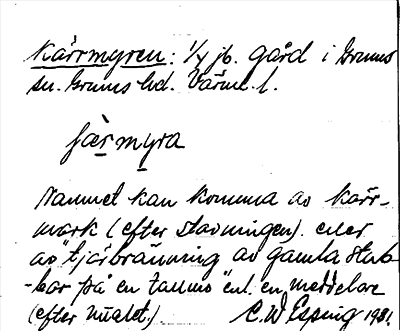 Kärrmyren: 1/4 jb. gård i Grums
sn. Grums hd. Värml. l.
ꞔærmyra
Namnet kan komma av kärr-
mark (efter stavningen). eller
av "tjärbränning av gamla stub-
-bar på en tallmo" enl. en meddelare
(efter uttalet.) C. W Esping 1931.